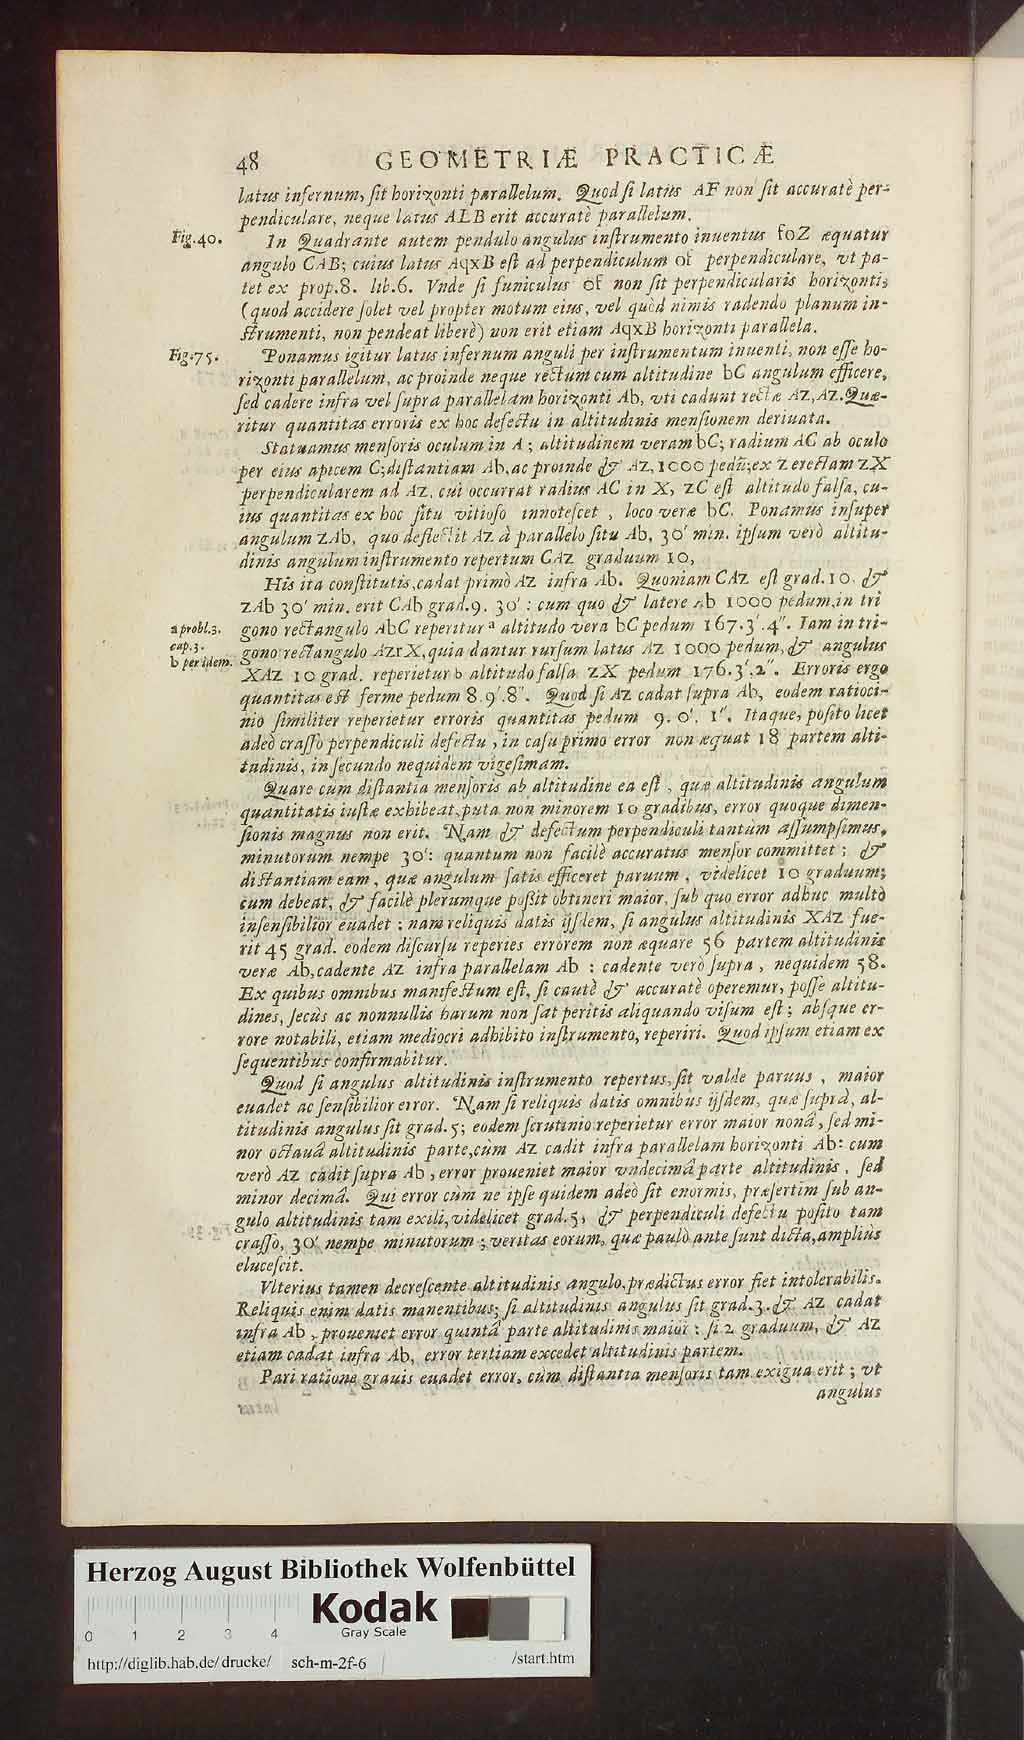 48 GEOMETRIÆ PRACTICÆ
latus infernum, sit horizonti parallelum. Quod si latus AF non sit accuratè per-
pendiculare, neque latus ALB erit accuratè parallelum.
Fig. 40.
In Quadrante autem pendulo angulus instrumento inuentus foZ æquatur
angulo CAB; cuius latus AqxB est ad perpendiculum of perpendiculare, vt pa-
tet ex prop.8. lib.6. Vnde si funiculus of non sit perpendicularis horizonti;
(quod accidere solet vel propter motum eius, vel quòd nimis radendo planum in-
strumenti, non pendeat liberè) non erit etiam AqxB horizonti parallela.
Fig.75.
Ponamus igitur latus infernum anguli per instrumentum inuenti, non esse ho-
rizonti parallelum, ac proinde neque rectum cum altitudine bC angulum efficere,
sed cadere infra vel supra parallelam horizonti Ab, vti cadunt rectæ AZ, AZ. Quæ-
ritur quantitas erroris ex hoc defectu in altitudinis mensionem deriuata.
Statuamus mensoris oculum in A; altitudinem veram bC; radium AC ab oculo
per eius apicem C; distantiam Ab, ac proinde & AZ, 1000 pedū; ex Z erectam ZX
perpendicularem ad AZ, cui occurrat radius AC in X, ZC est altitudo falsa, cu-
ius quantitas ex hoc situ vitioso innotescet, loco veræ bC. Ponamus insuper
angulum ZAb, quo deflectit AZ à parallelo situ Ab, 30′ min. ipsum verò altitu-
dinis angulum instrumento repertum CAZ graduum 10,
His ita constitutis, cadat primò AZ infra Ab. Quoniam CAZ est grad. 10. &
ZAb 30′ min. erit CAb grad.9. 30′ : cum quo & latere Ab 1000 pedum, in tri
a probl.3.
cap.3.
b per idem.
gono rectangulo AbC reperitur a altitudo vera bC pedum 167.3′.4″. Iam in tri-
gono rectangulo AZX, quia dantur rursum latus AZ 1000 pedum, & angulus
XAZ 10 grad. reperietur b altitudo falsa ZX pedum 176.3′.2″. Erroris ergo
quantitas est ferme pedum 8.9′.8″. Quod si AZ cadat supra Ab, eodem ratioci-
nio similiter reperietur erroris quantitas pedum 9. 0′. 1″. Itaque, posito licet
adeò crasso perpendiculi defectu, in casu primo error non æquat 18 partem alti-
tudinis, in secundo nequidem vigesimam.
Quare cùm distantia mensoris ab altitudine ea est, quæ altitudinis angulum
quantitatis iustæ exhibeat, puta non minorem 10 gradibus, error quoque dimen-
sionis magnus non erit. Nam & defectum perpendiculi tantùm assumpsimus,
minutorum nempe 30′: quantum non facilè accuratus mensor committet; &
distantiam eam, quæ angulum satis efficeret paruum, videlicet 10 graduum;
cum debeat, & facilè plerumque poßit obtineri maior, sub quo error adhuc multò
insensibilior euadet : nam reliquis datis ijsdem, si angulus altitudinis XAZ fue-
rit 45 grad. eodem discursu reperies errorem non æquare 56 partem altitudinis
veræ Ab, cadente AZ infra parallelam Ab : cadente verò supra, nequidem 58.
Ex quibus omnibus manifestum est, si cautè & accuratè operemur, posse altitu-
dines, secùs ac nonnullis harum non sat peritis aliquando visum est; absque er-
rore notabili, etiam mediocri adhibito instrumento, reperiri. Quod ipsum etiam ex
sequentibus confirmabitur.
Quod si angulus altitudinis instrumento repertus, sit valde paruus, maior
euadet ac sensibilior error. Nam si reliquis datis omnibus ijsdem, quæ suprà, al-
titudinis angulus sit grad.5; eodem scrutinio reperietur error maior nonâ, sed mi-
nor octauâ altitudinis parte, cùm AZ cadit infra parallelam horizonti Ab: cum
verò AZ cadit supra Ab, error proueniet maior vndecimâ parte altitudinis, sed
minor decimâ. Qui error cùm ne ipse quidem adeò sit enormis, præsertim sub an-
gulo altitudinis tam exili, videlicet grad.5, & perpendiculi defectu posito tam
crasso, 30′ nempe minutorum; veritas eorum, quæ paulò ante sunt dicta, ampliùs
elucescit.
Vlterius tamen decrescente altitudinis angulo, prædictus error fiet intolerabilis.
Reliquis enim datis manentibus; si altitudinis angulus sit grad.3. & AZ cadat
infra Ab, proueniet error quintâ parte altitudinis maior : si 2 graduum, & AZ
etiam cadat infra Ab, error tertiam excedet altitudinis partem.
Pari ratione grauis euadet error, cùm distantia mensoris tam exigua erit; vt
angulus
Herzog August Bibliothek Wolfenbüttel
Kodak
Gray Scale
0 1 2 3 4
http://diglib.hab.de/drucke/ sch-m-2f-6 /start.htm